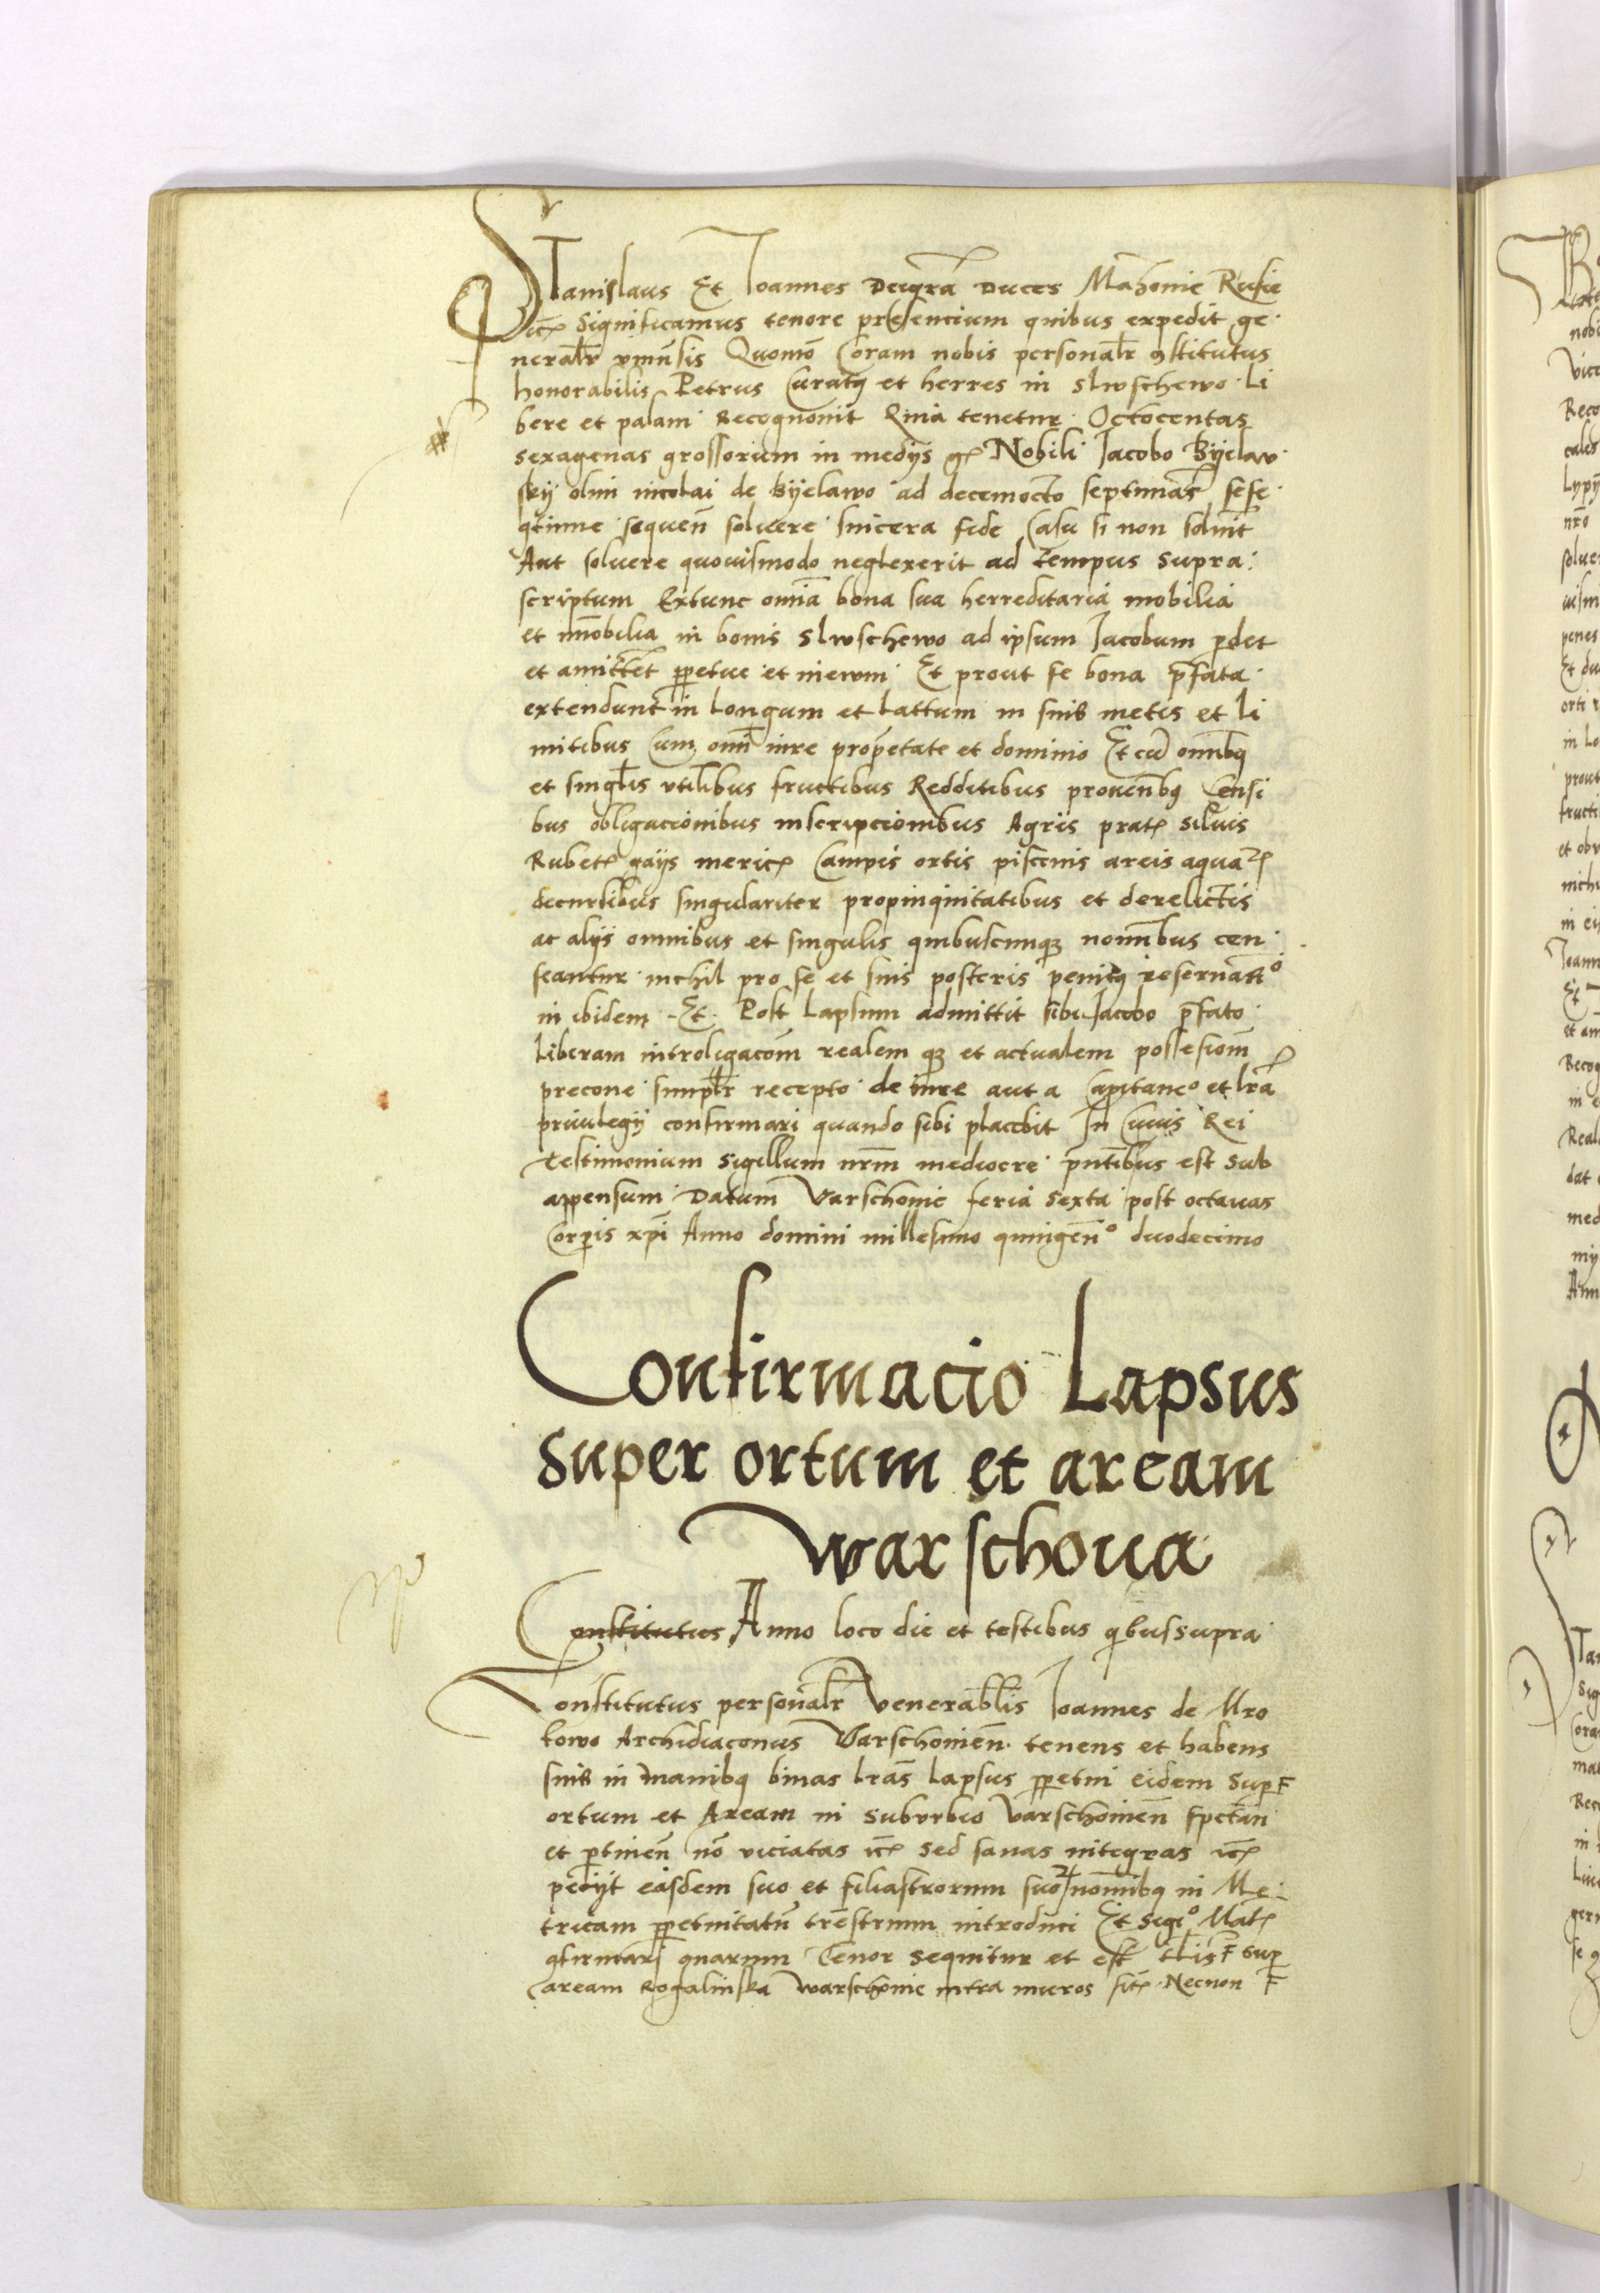 Stanislaus Et Ioannes Deigrã Duces Mazhonie Rusie
etc Significamus tenore presencium quibus expedit ge
neralr̃ vniũsis Quomõ Coram nobis personalr̃ 9stitutus
honorabilis Petrus Curatq et herres in Slwschewo Li
bere et palam Recognouit Quia tenetur Octocentas
sexagenas grossorum in medijs gr Nobili Iacobo Byelaw
sky olim nicolai de Byelawo ad decemocto septimãs sese
9tinue sequeñ soluere sincera fide Casu si non soluit
Aut soluere quouismodo neglexerit ad tempus supra
scriptum Extunc omĩa bona sua herreditaria mobilia
et im̃obilia in bonis Slwschewo ad ipsum Iacobum pdet
et amittet ppetue et in ewm Et prout se bona p̃fata
extendunt in Longum et Lattum in suis metis et li
mitibus Cum om̃i iure propietate et dominio Et cũ omĩbq
et singl̃is vtilibus fructibus Redditibus prouenĩbq Censi
bus obligacionibus inscripcionibus Agris prat siluis
Rubet gays meric Campis ortis piscinis areis aquaꝝ
decursibus singulariter propinquitatibus et derelictis
ac alijs omnibus et singulis quibuscunqꝫ nominibus cen
seantur nichil pro se et suis posteris penitq reseruãtõ
in ibidem Et Post Lapsum admittit sibi Iacobo p̃fato
Liberam introligacom̃ realem qꝫ et actualem possesiom̃
precone simplr̃ recepto de iure aut a Capitaneo et lr̃a
priuilegij confirmari quando sibi placebit In Cuius Rei
Testimonium Sigillum nr̃m mediocre pñtibus est Sub
appensum Datum Varschouie feria Sexta post octauas
Corpis xp̃i Anno domini millesimo quingeñº duodecimo
Confirmacio Lapsus
super ortum et aream
warschoua
Constitutus Anno loco die et testibus qibussupra
Constitutus personalr̃ Venerabl̃is Ioannes de Mro
kowo Archidiaconus Varschouieñ tenens et habens
suis in manibq binas lr̃as Lapsus ppetui eidem Sup F
ortum et Aream in suburbio Varschouieñ spectañ
et ptineñ nõ viciatas etc sed sanas integras etc
peciyt easdem suo et filiastrorum suoꝝ nom̃ibq in Me
tricam ppetuitatũ trẽstrium introduci Et Sigiº Mat
9firmari quarum Tenor sequitur et est tl̃is F sup
aream Rogalinska warschouie intra muros sit Necnon F